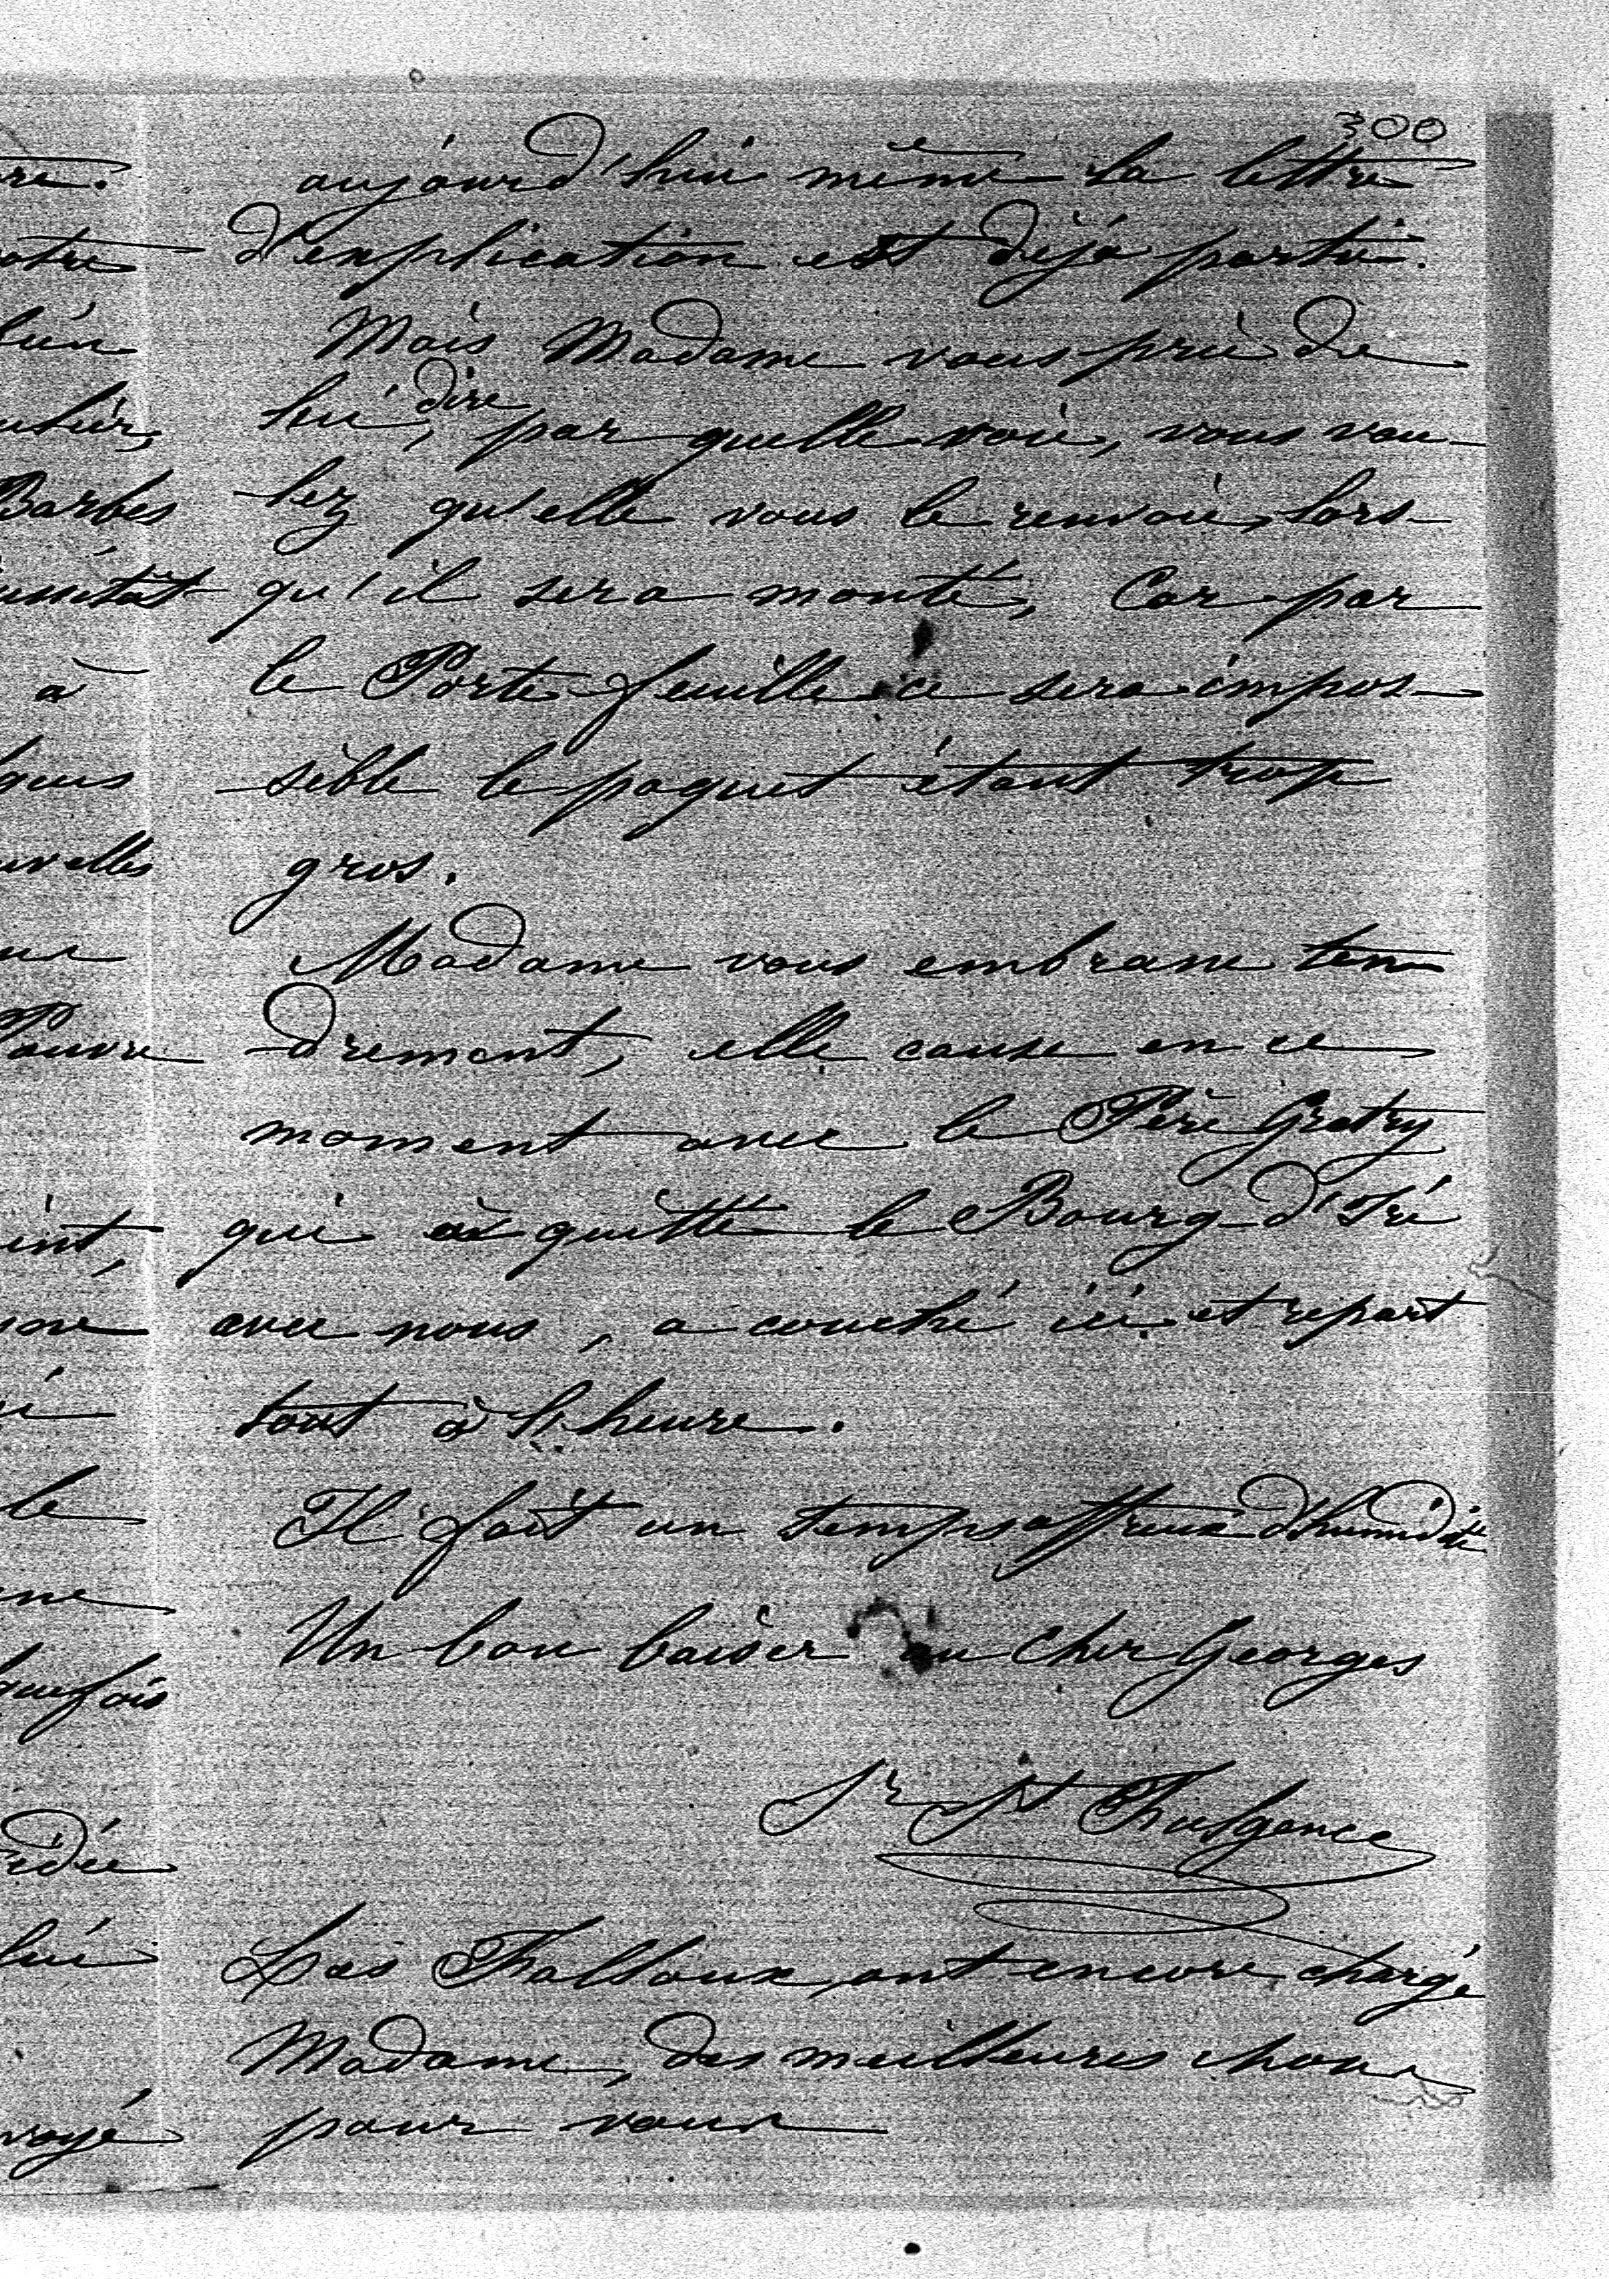 300
aujourd'hui même la lettre
d'explication est déjà partie.
Mais Madame vous prie de
lui dire, par quelle voie, vous vou-
-lez qu'elle vous le renvoie, lors-
qu'il sera monté, Car par
le Porte-feuille ce sera impos-
-sible le paquet étant trop
gros.
Madame vous embrasse ten
-drement, elle cause en ce
moment avec le Père Gratry
qui a quitté le Bourg-d'Iré
avec nous, a couché ici et repart
tout à l'heure.
Il fait un temps affreux d'humidité
Un bon baiser au cher Georges
Sr St Fulgence
Les Falloux ont encore chargé
Madame, des meilleures choses
pour vous
otre
bien
Barbes
à
uvelles
Pauvre
int,
le
quefois
idée
lui
voyé